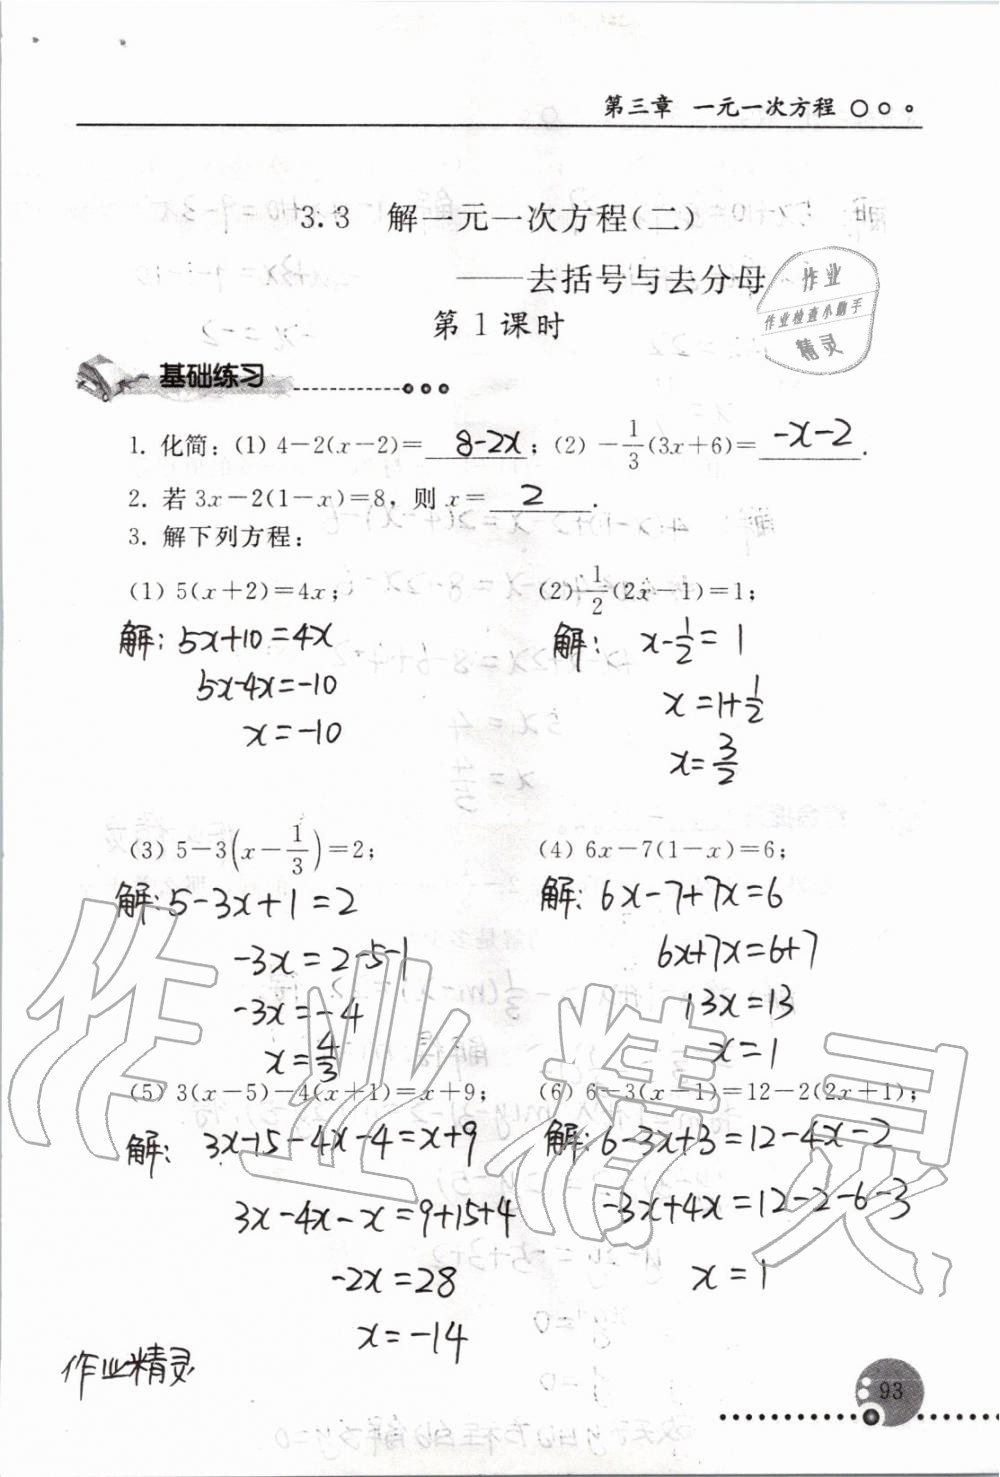 第三章 一元一次方程
3.3 解一元一次方程(二)
——去括号与去分母
作业
作业检查小助手
精灵
第1课时
基础练习
1. 化简：(1) 4-2(x-2)= 8-2x ；(2) -1/3(3x+6)= -x-2 .
2. 若 3x-2(1-x)=8，则 x= 2 .
3. 解下列方程：
(1) 5(x+2)=4x； (2) 1/2(2x-1)=1；
解: 5x+10=4x 解: x-1/2=1
5x-4x=-10 x=1+1/2
x=-10 x=3/2
(3) 5-3(x-1/3)=2； (4) 6x-7(1-x)=6；
解: 5-3x+1=2 解: 6x-7+7x=6
-3x=2-5-1 6x+7x=6+7
-3x=-4 13x=13
x=4/3 x=1
(5) 3(x-5)-4(x+1)=x+9； (6) 6-3(x-1)=12-2(2x+1)；
解: 3x-15-4x-4=x+9 解: 6-3x+3=12-4x-2
3x-4x-x=9+15+4 -3x+4x=12-2-6-3
-2x=28 x=1
x=-14
作业精灵
作业精灵
93